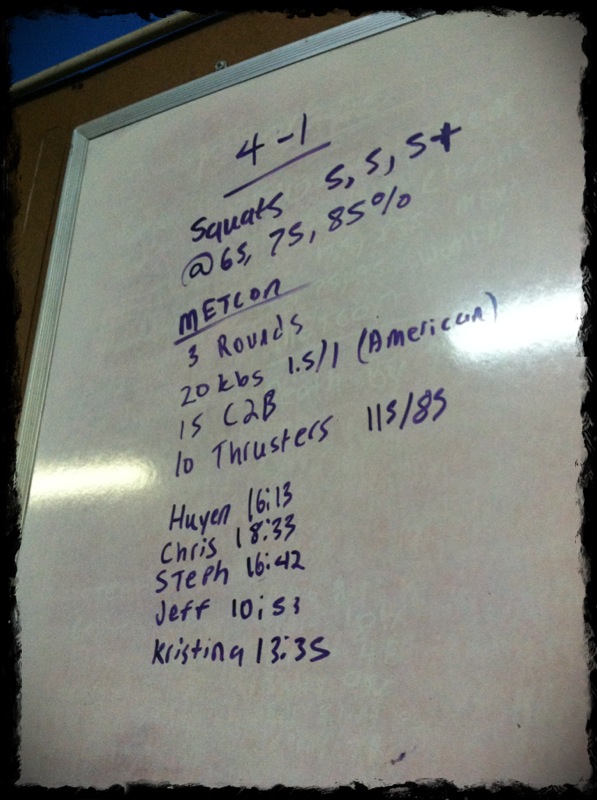 4-1
Squats 5, 5, 5+
@65, 75, 85%
METCON
3 Rounds
20 kbs 1.5/1 (American)
15 C2B
10 Thrusters 115/85
Huyen 16:13
Chris 18:33
Steph 16:42
Jeff 10:53
Kristina 13:35